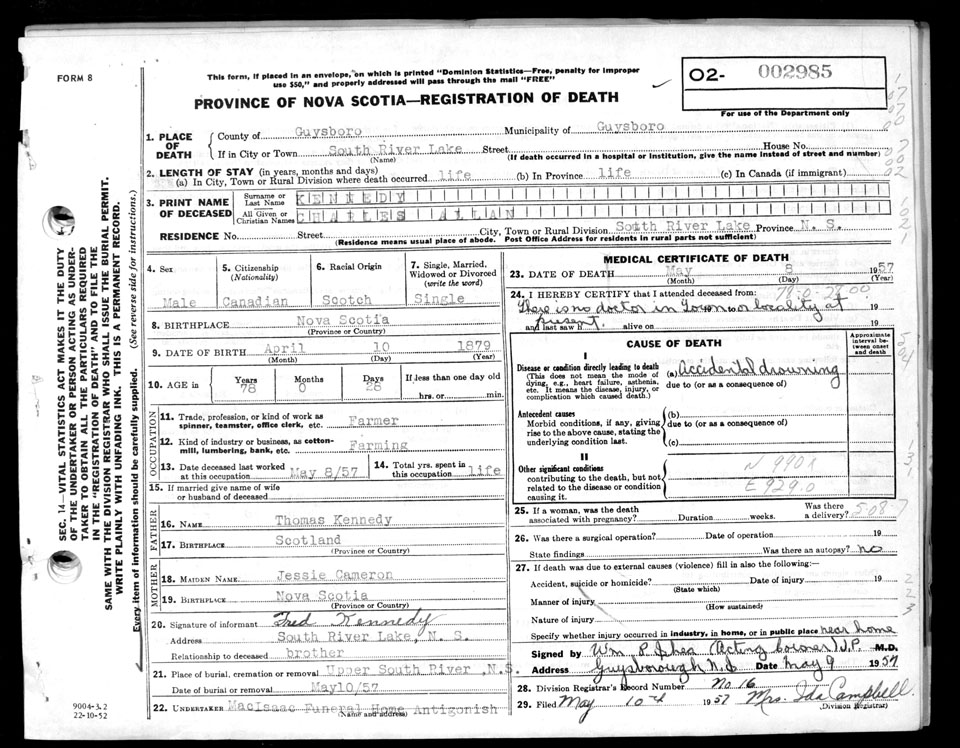 FORM 8
This form, if placed in an envelope, on which is printed "Dominion Statistics—Free, penalty for improper
use $50," and properly addressed will pass through the mail "FREE"
O2- 002985
For use of the Department only
PROVINCE OF NOVA SCOTIA—REGISTRATION OF DEATH
1. PLACE OF DEATH
County of Guysboro Municipality of Guysboro
If in City or Town South River Lake Street House No.
(Name) (If death occurred in a hospital or institution, give the name instead of street and number)
2. LENGTH OF STAY (in years, months and days)
(a) In City, Town or Rural Division where death occurred life (b) In Province life (c) In Canada (if immigrant)
3. PRINT NAME OF DECEASED
Surname or Last Name KENNEDY
All Given or Christian Names CHARLES ALLAN
RESIDENCE No. Street City, Town or Rural Division South River Lake Province N. S.
(Residence means usual place of abode. Post Office Address for residents in rural parts not sufficient)
4. Sex
Male
5. Citizenship
(Nationality)
Canadian
6. Racial Origin
Scotch
7. Single, Married,
Widowed or Divorced
(write the word)
Single
8. BIRTHPLACE Nova Scotia
(Province or Country)
9. DATE OF BIRTH April 10 1879
(Month) (Day) (Year)
10. AGE in
Years Months Days If less than one day old
78 0 28 hrs. or min.
OCCUPATION
11. Trade, profession, or kind of work as
spinner, teamster, office clerk, etc. Farmer
12. Kind of industry or business, as cotton-
mill, lumbering, bank, etc. Farming
13. Date deceased last worked
at this occupation May 8/57
14. Total yrs. spent in
this occupation life
15. If married give name of wife
or husband of deceased
FATHER
16. NAME Thomas Kennedy
17. BIRTHPLACE Scotland
(Province or Country)
MOTHER
18. MAIDEN NAME Jessie Cameron
19. BIRTHPLACE Nova Scotia
(Province or Country)
20. Signature of informant Fred Kennedy
Address South River Lake, N. S.
Relationship to deceased brother
21. Place of burial, cremation or removal Upper South River, N.S.
Date of burial or removal May10/57
22. UNDERTAKER MacIsaac Funeral Home Antigonish
(Name and Address)
MEDICAL CERTIFICATE OF DEATH
23. DATE OF DEATH May 8 1957
(Month) (Day) (Year)
24. I HEREBY CERTIFY that I attended deceased from:
There is no doctor in Town or locality at 19
present.
and last saw h alive on 19
CAUSE OF DEATH
Approximate
interval between
onset
and death
I
Disease or condition directly leading to death
(This does not mean the mode of
dying, e.g., heart failure, asthenia,
etc. It means the disease, injury, or
complication which caused death.)
(a) Accidental drowning
due to (or as a consequence of)
Antecedent causes
Morbid conditions, if any, giving
rise to the above cause, stating the
underlying condition last.
(b)
due to (or as a consequence of)
(c)
II
Other significant conditions
contributing to the death, but not
related to the disease or condition
causing it.
N 990 X
E 929.0
25. If a woman, was the death
associated with pregnancy? Duration weeks. Was there a delivery?
26. Was there a surgical operation? Date of operation 19
State findings Was there an autopsy? no
27. If death was due to external causes (violence) fill in also the following:—
Accident, suicide or homicide? Date of injury 19
(State which)
Manner of injury
(How sustained)
Nature of injury
Specify whether injury occurred in industry, in home, or in public place near home
Signed by Wm. P. Shea (Acting Coroner) J.P. M.D.
Address Guysborough N.S. Date May 9 1957
28. Division Registrar's Record Number No 16
29. Filed May 10th 1957 Mrs. Ida Campbell.
(Division Registrar)
SEC. 14—VITAL STATISTICS ACT MAKES IT THE DUTY
OF THE UNDERTAKER OR PERSON ACTING AS UNDER-
TAKER TO OBTAIN ALL THE PARTICULARS REQUIRED
IN THE "REGISTRATION OF DEATH" AND TO FILE THE
SAME WITH THE DIVISION REGISTRAR WHO SHALL ISSUE THE BURIAL PERMIT.
WRITE PLAINLY WITH UNFADING INK. THIS IS A PERMANENT RECORD.
Every item of information should be carefully supplied. (See reverse side for instructions.)
9004-3.2
22-10-52